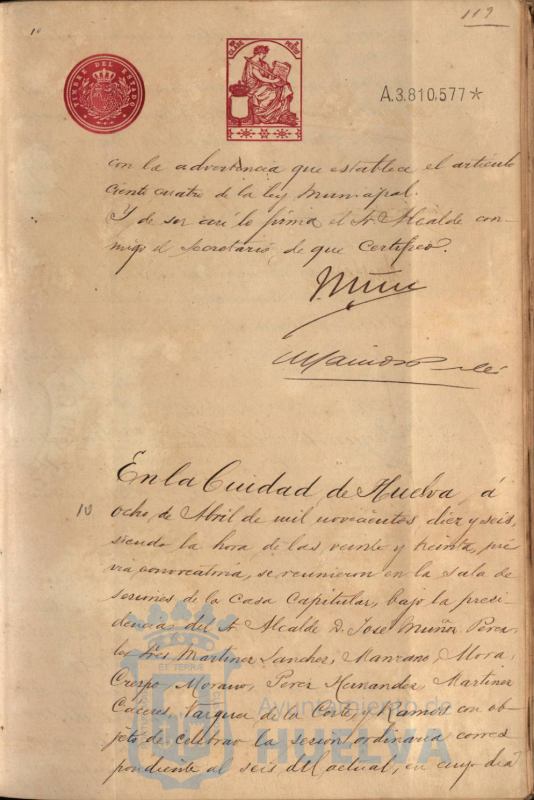 119
10
TIMBRE DEL ESTADO
A.3.810,577*
con la advertencia que establece el artículo
ciento cuatro de la ley Municipal.
Y de ser así lo firma el Sr Alcalde con-
migo el Secretario, de que Certifico.
En la Ciudad de Huelva, á
10
ocho de Abril de mil novecientos diez y seis,
siendo la hora de las veinte y treinta, pré-
via convocatoria, se reunieron en la sala de
sesiones de la Casa Capitular, bajo la presi-
dencia del Sr Alcalde D. José Muñoz Perez
los Sres Martinez Sanchez, Manzano, Mora,
Crespo Morano, Perez Hernandez, Martinez
Cáceres, Vazquez de la Corte, y Ramos con ob-
jeto de celebrar la sesion ordinaria corres
pondiente al seis del actual, en cuyo dia
Ayuntamiento de
HUELVA